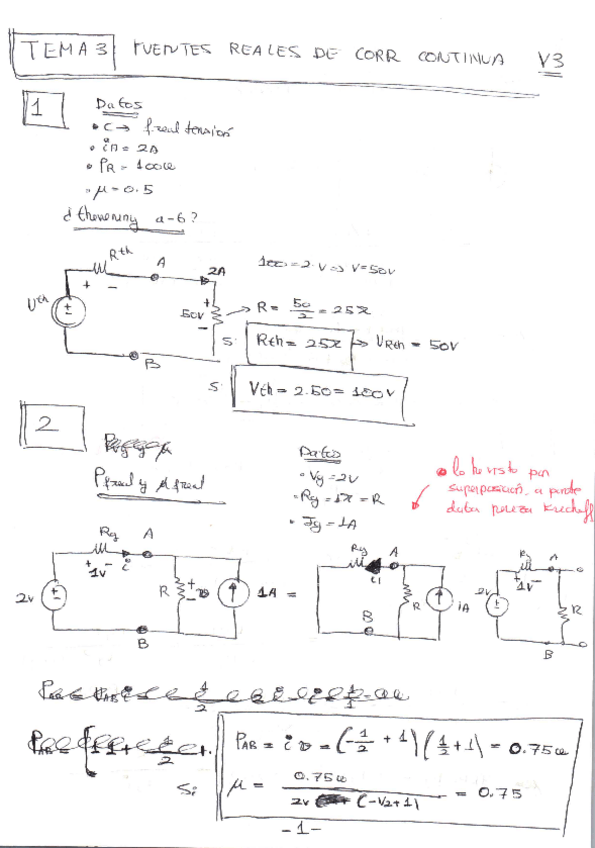 TEMA 3 FUENTES REALES DE CORR CONTINUA V3
1
Datos
• C → f real tensión
• iA = 2A
• PR = 100w
• μ = 0.5
d thevening a-b?
Rth
A
2A
100 = 2·V ⇒ V = 50V
Uth
+ -
50V
→ R = 50/2 = 25Ω
B
S: Rth = 25Ω → URth = 50V
S: Vth = 2·50 = 100V
2
Pfreal y μ freal
Datos
• Vg = 2V
• Rg = 1Ω = R
• Ig = 1A
• lo he visto por
superposición, a parte
daba pereza Kirchoff
Rg A
+ 1V - i
2V
R
+ v -
1A =
B
Rg A
i1
R
1A
B
Rg A
+ 1V -
2V
R
B
PAB = i v = (-1/2 + 1) (1/2 + 1) = 0.75w
Si μ = 0.75w / 2V (-1/2+1) = 0.75
-1-